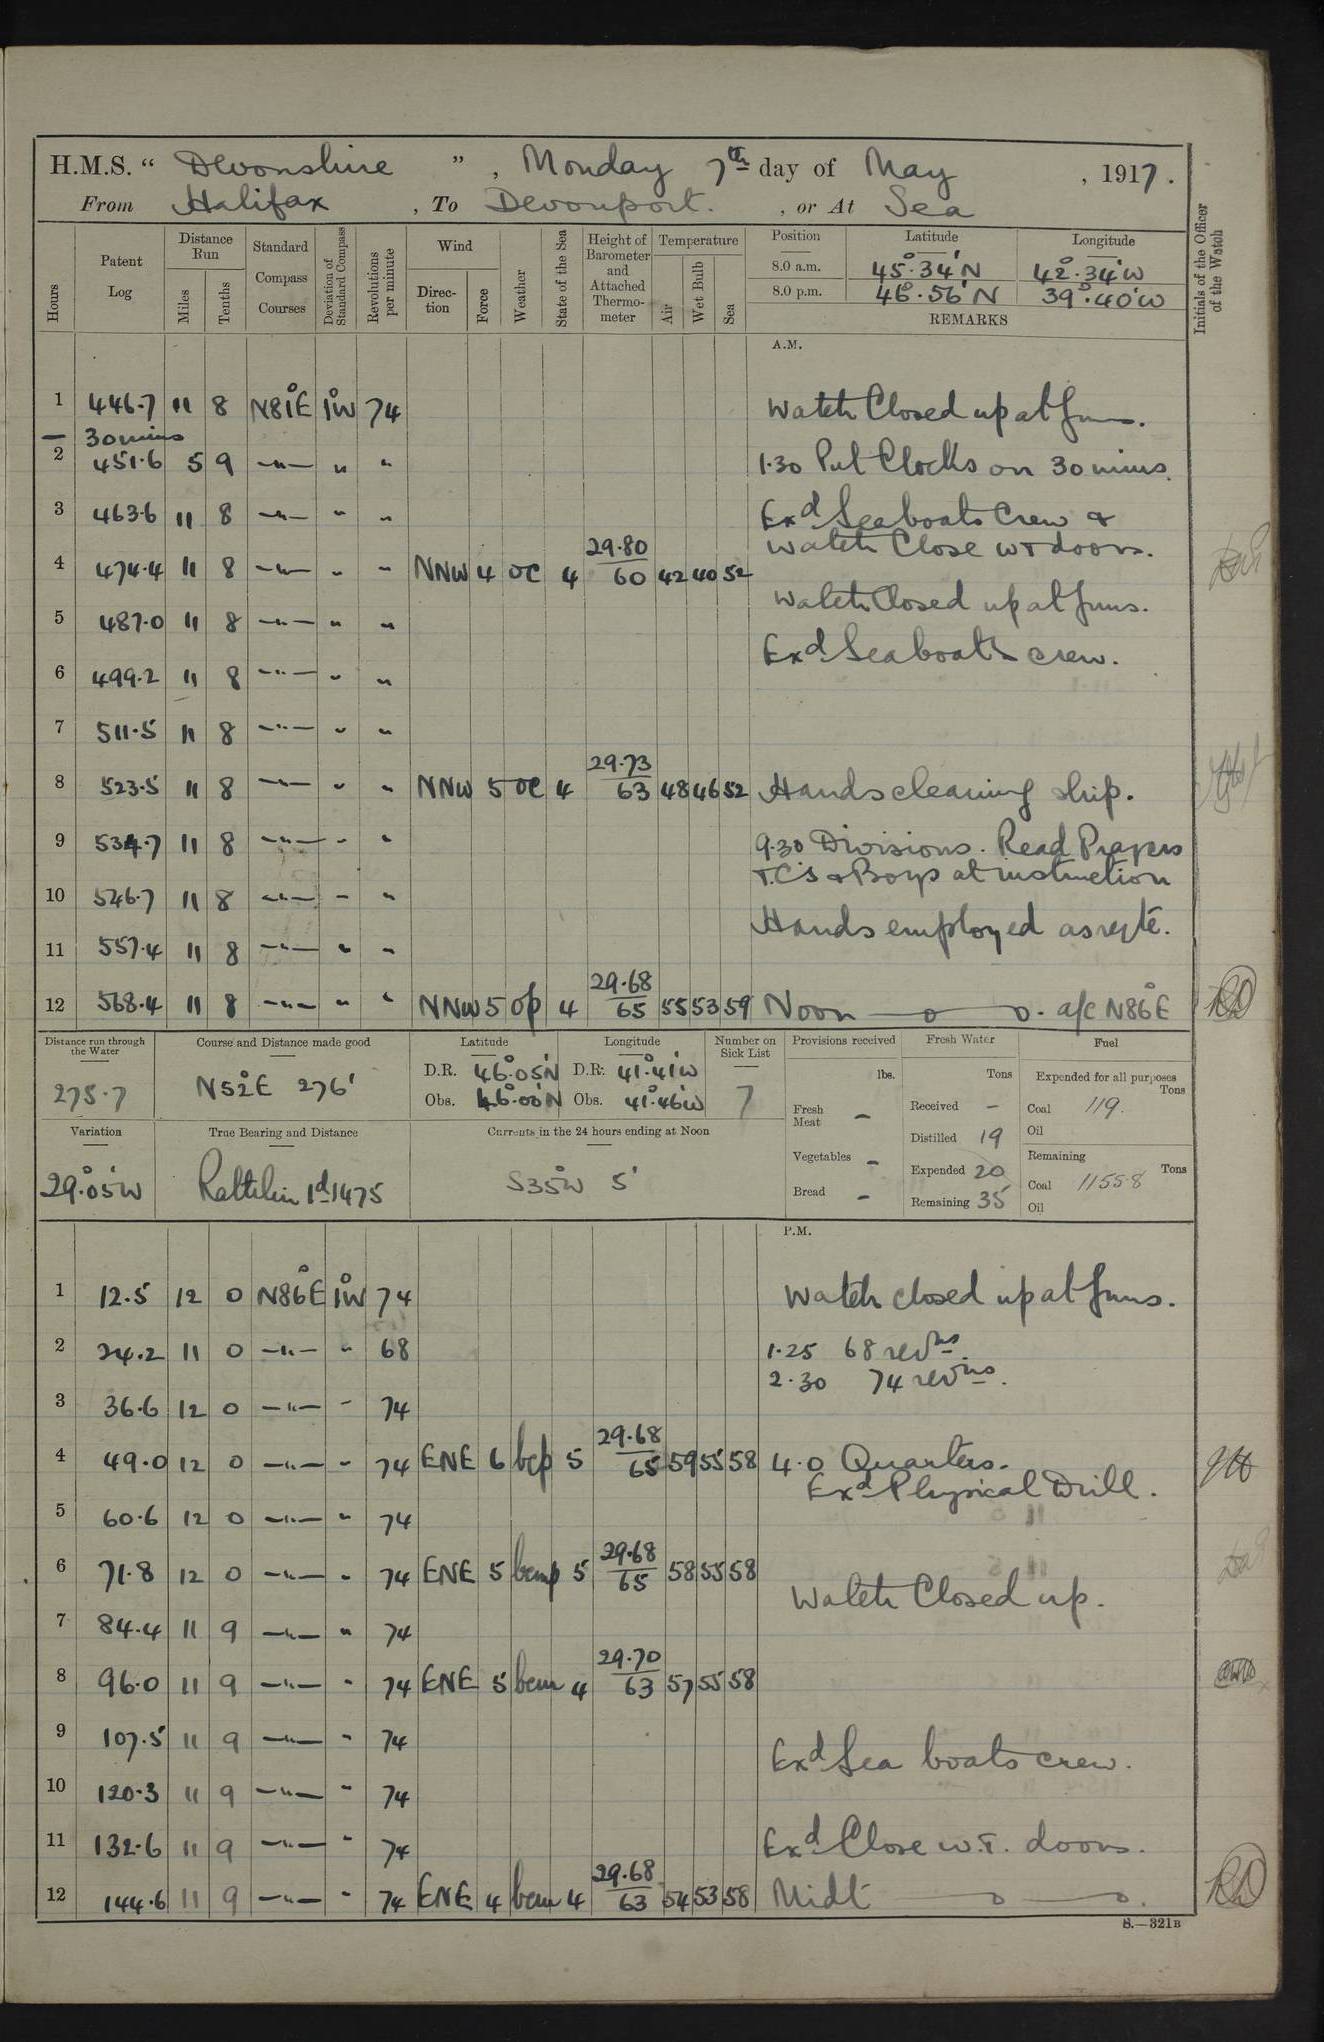 H.M.S. “ Devonshire ” , Monday 7th day of May , 1917.
From Halifax , To Devonport. , or At Sea
Hours
Patent Log
Distance Run
Miles
Tenths
Standard Compass Courses
Deviation of Standard Compass
Revolutions per minute
Wind
Direction
Force
Weather
State of the Sea
Height of Barometer and Attached Thermometer
Temperature
Air
Wet Bulb
Sea
Position
Latitude
Longitude
8.0 a.m. 45°.34'N 42°.34'W
8.0 p.m. 46°.56'N 39°.40'W
REMARKS
Initials of the Officer of the Watch
A.M.
1 446.7 11 8 N81°E 1°W 74 Watch Closed up at Guns.
30 mins
2 451.6 5 9 —"— " " 1.30 Put Clocks on 30 mins.
3 463.6 11 8 —"— " " Exd Seaboats Crew &
Watch Close WT doors.
4 474.4 11 8 —"— " " NNW 4 oc 4 29.80 60 42 40 52
Watch Closed up at Guns.
5 487.0 11 8 —"— " "
Exd Seaboats crew.
6 499.2 11 8 —"— " "
7 511.5 11 8 —"— " "
8 523.5 11 8 —"— " " NNW 5 oc 4 29.73 63 48 46 52 Hands cleaning ship.
9 534.7 11 8 —"— " " 9.30 Divisions. Read Prayers
T.C's & Boys at instruction
10 546.7 11 8 —"— " "
Hands employed as reqte.
11 557.4 11 8 —"— " "
12 568.4 11 8 —"— " " NNW 5 op 4 29.68 65 55 53 59 Noon —o— o. a/c N86°E
Distance run through the Water
275.7
Course and Distance made good
N52°E 276'
Latitude
D.R. 46°.05'N
Obs. 46°.00'N
Longitude
D.R. 41°.41'W
Obs. 41°.46'W
Number on Sick List
7
Provisions received
lbs.
Fresh Meat –
Vegetables –
Bread –
Fresh Water
Tons
Received –
Distilled 19
Expended 20
Remaining 35
Fuel
Expended for all purposes
Tons
Coal 119.
Oil
Remaining
Tons
Coal 1155.8
Oil
Variation
29°.05'W
True Bearing and Distance
Rathlin Id 1475
Currents in the 24 hours ending at Noon
S35°W 5'
P.M.
1 12.5 12 0 N86°E 1°W 74 Watch closed up at Guns.
2 24.2 11 0 —"— " 68 1.25 68 revns.
2.30 74 revns.
3 36.6 12 0 —"— " 74
4 49.0 12 0 —"— " 74 ENE 6 bcp 5 29.68 65 59 55 58 4.0 Quarters.
Exd Physical Drill.
5 60.6 12 0 —"— " 74
6 71.8 12 0 —"— " 74 ENE 5 bcmp 5 29.68 65 58 55 58
Watch Closed up.
7 84.4 11 9 —"— " 74
8 96.0 11 9 —"— " 74 ENE 5 bcm 4 29.70 63 57 55 58
9 107.5 11 9 —"— " 74
Exd Sea boats crew.
10 120.3 11 9 —"— " 74
11 132.6 11 9 —"— " 74 Exd Close W.T. doors.
12 144.6 11 9 —"— " 74 ENE 4 bcm 4 29.68 63 54 53 58 Midt —o— o.
S.—321B